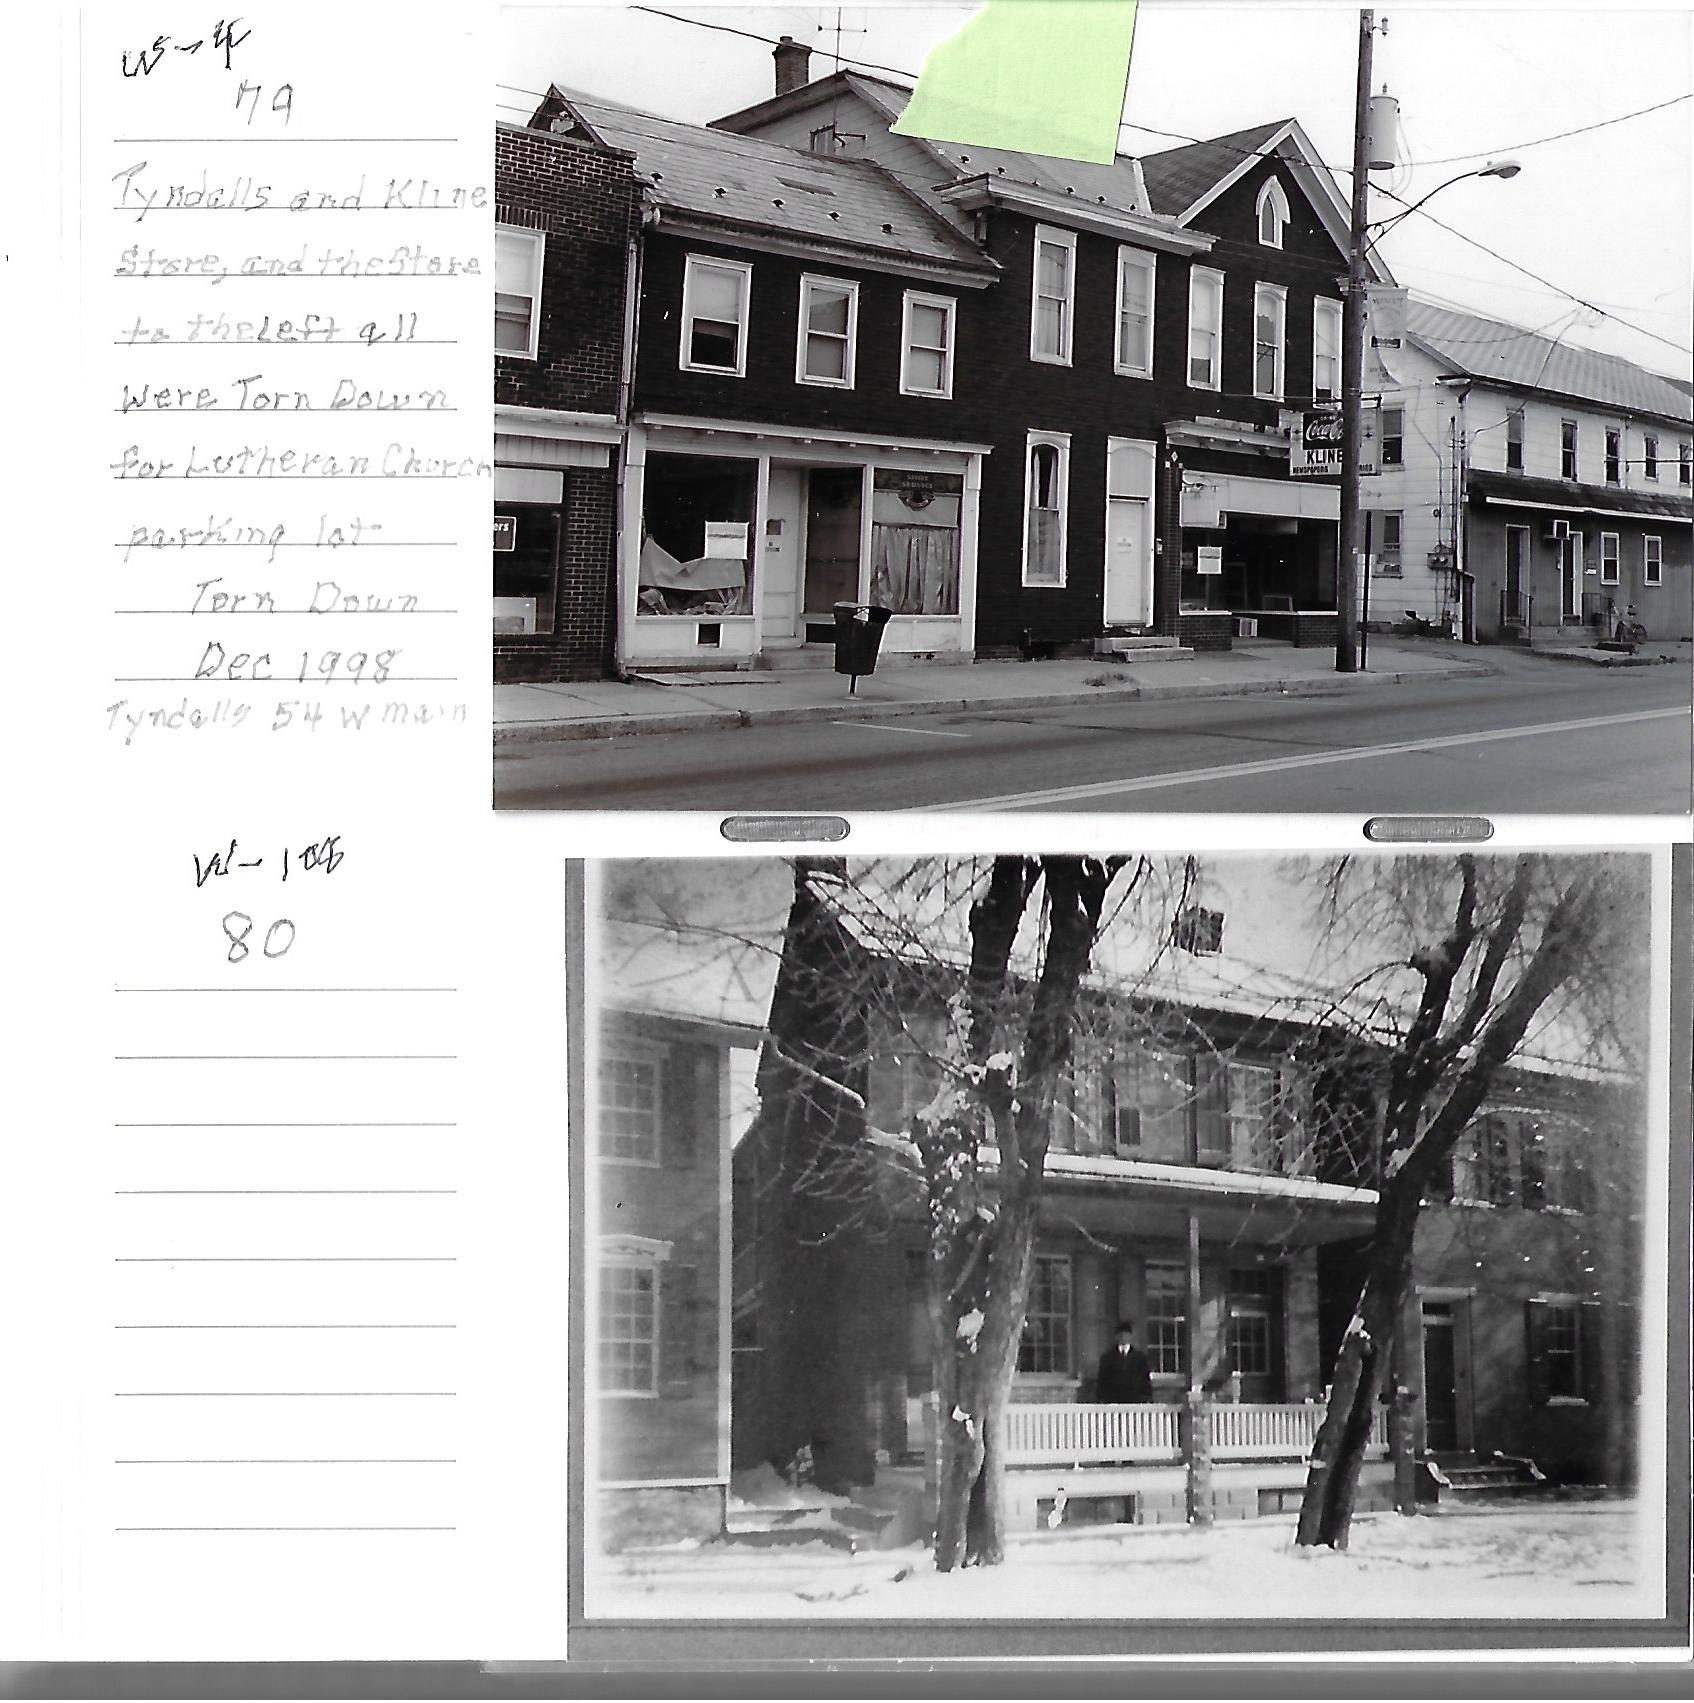 79
Tyndalls and Kline
Store, and the Store
to the Left all
were Torn Down
for Lutheran Church
parking lot
Torn Down
Dec 1998
Tyndalls 54 W Main
SHOE
SERVICE
ers
Coca-Co
KLINE
NEWSPAPERS
80